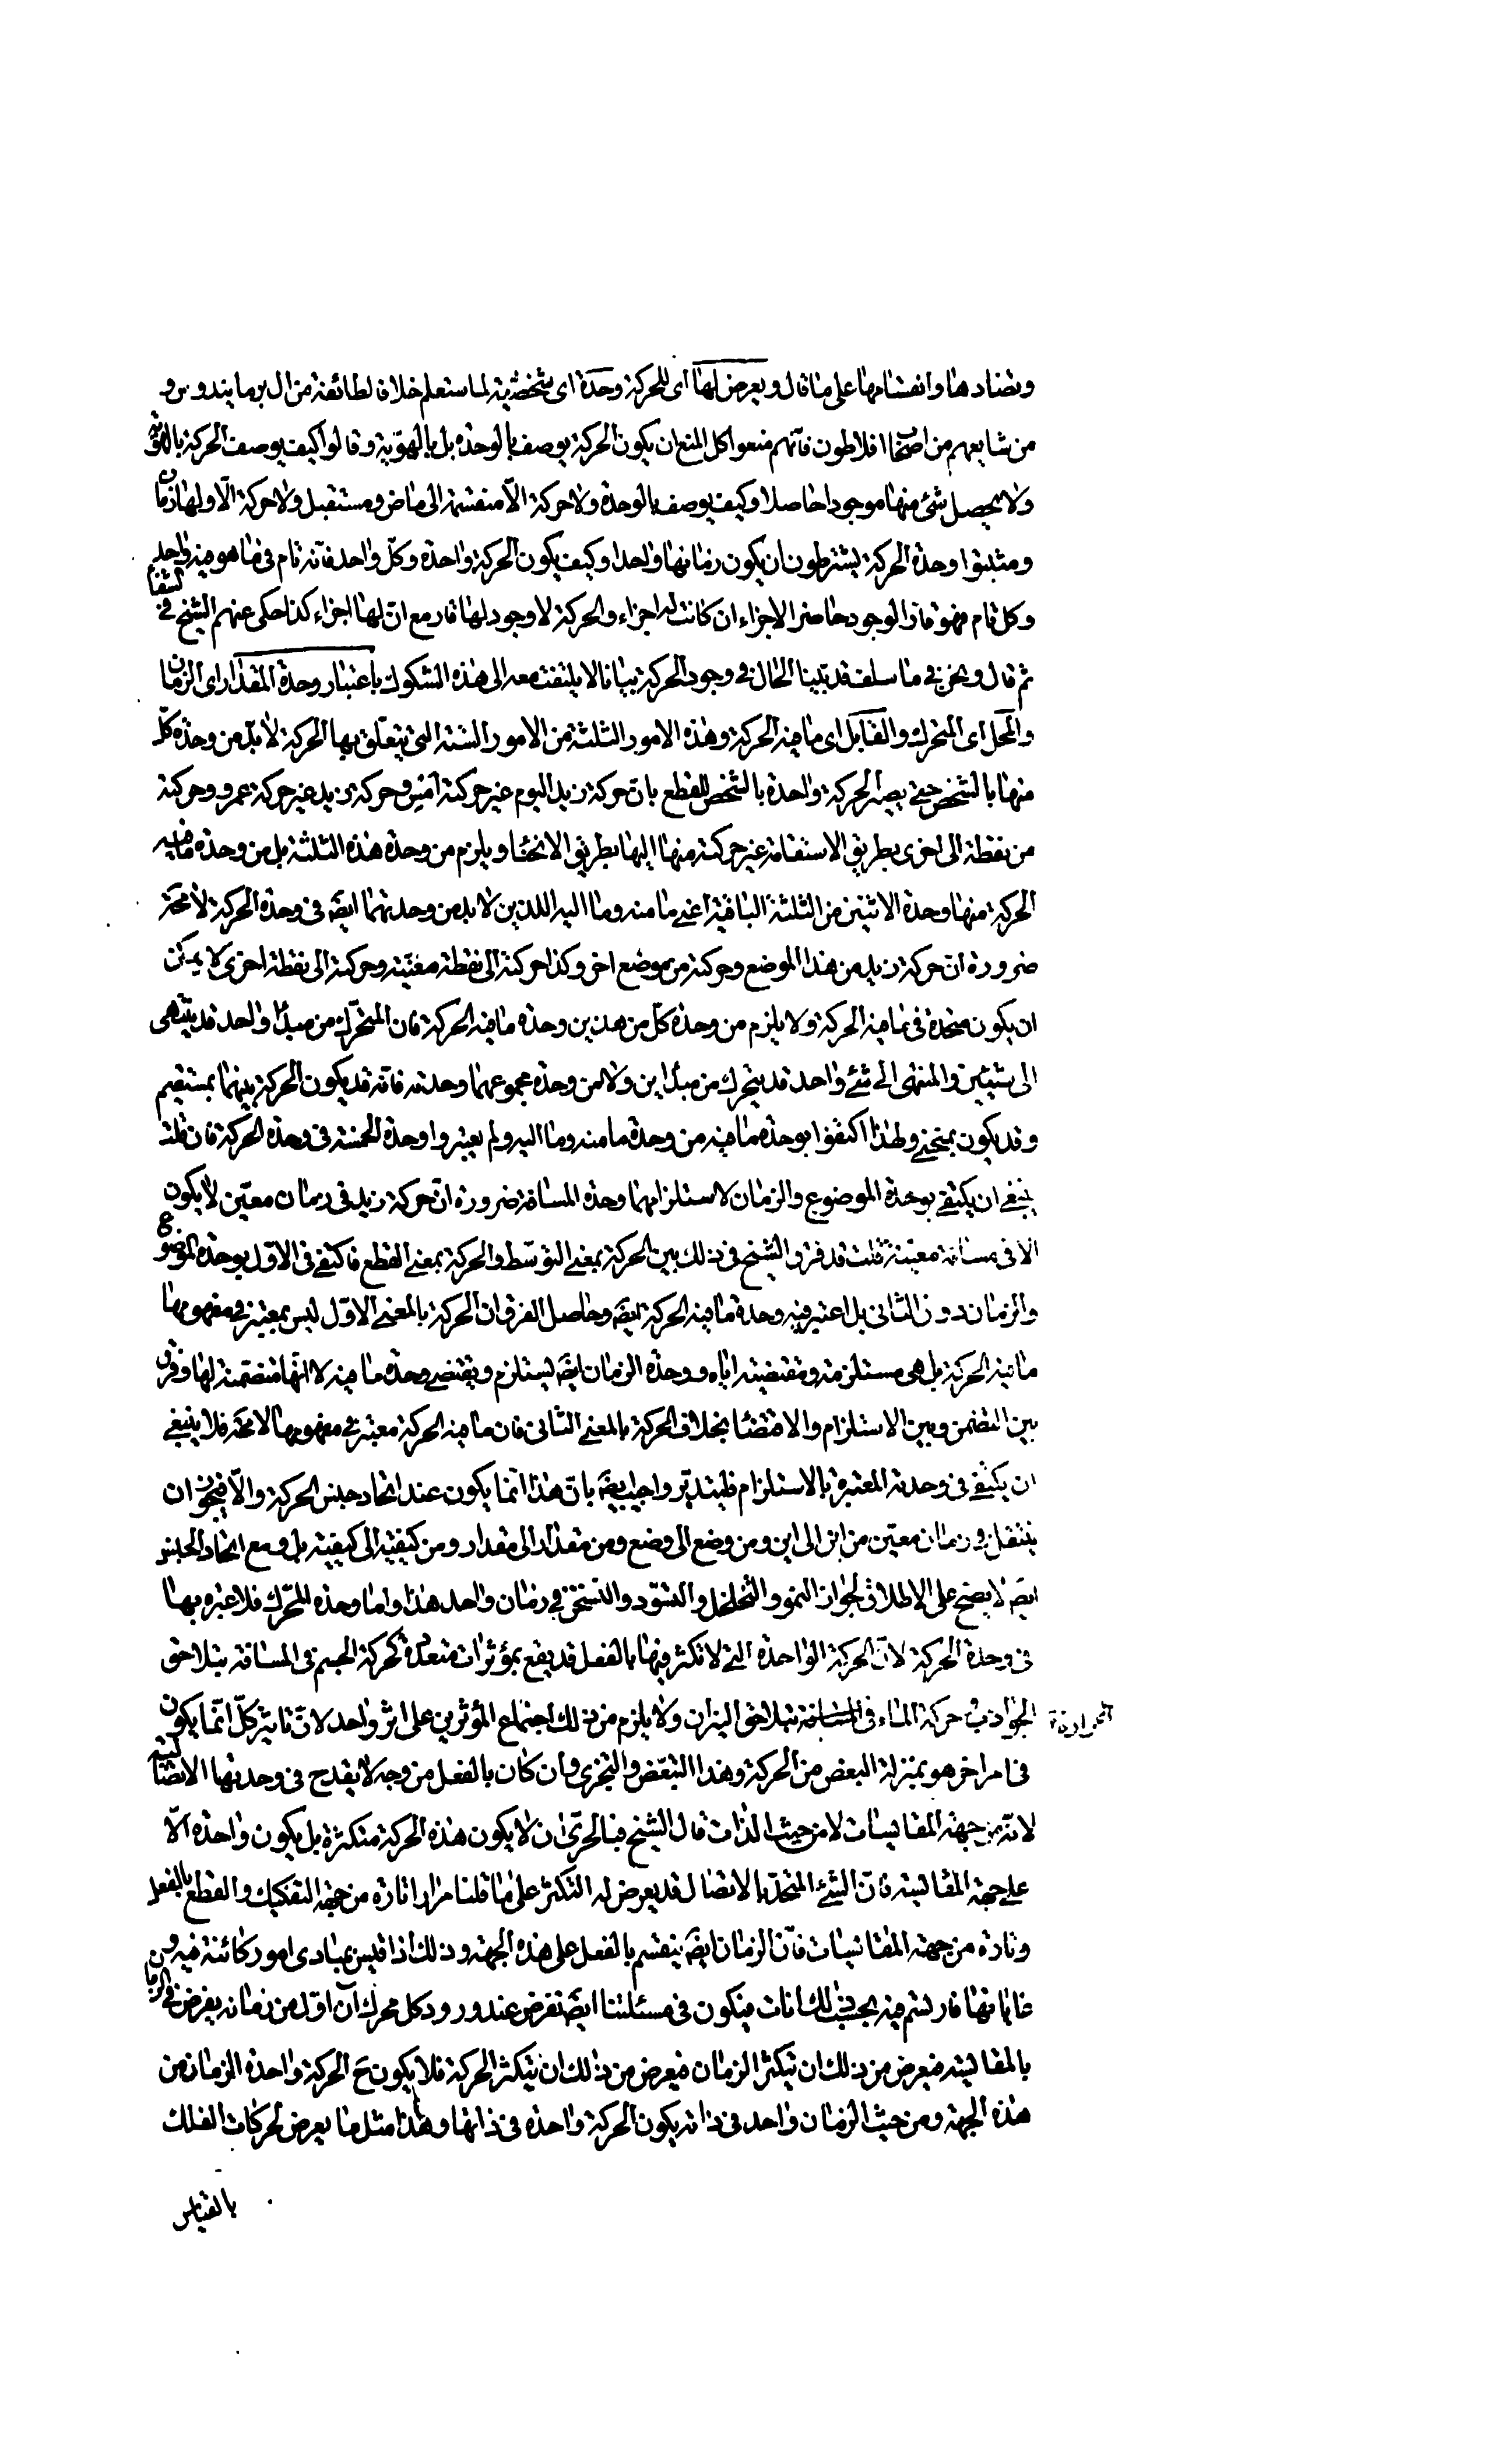 وتضادها وانقسامها على ما قال ويعرض لها اى للحركة وحدة اى شخصية لما ستعلم خلافا لطائفة من ال برمانيدوس و
من شايعهم من اصحاب افلاطون فانهم منعوا كل المنع ان يكون الحركة يوصف بالوحدة بل بالهوية وقالوا كيف يوصف الحركة بالهوية
ولا يحصل شئ منها موجودا حاصلا وكيف يوصف بالوحدة ولا حركة الّا منقسمة الى ماض ومستقبل ولا حركة الّا ولها زمان
ومثبتوا وحدة الحركة يشترطون ان يكون زمانها واحدا وكيف يكون الحركة واحدة وكلّ واحد فانه تام فى ما هو فيه واحد
وكل تام فهو قار الوجود حاضر الاجزاء ان كانت له اجزاء والحركة لا وجود لها قار مع انّ لها اجزاء كذا حكى عنهم الشيخ فى الشفا
ثم قال ونحن فى ما سلف قد بيّنا الحال فى وجود الحركة بيانا لا يلتفت معه الى هذه الشكوك باعتبار وحدة المقدار اى الزمان
والمحل اى المتحرك والقابل اى ما فيه الحركة وهذه الامور الثلثة من الامور الستة التى يتعلّق بها الحركة لا بدّ من وحدة كلّ
منها بالشخص حتى يصير الحركة واحدة بالشخص للقطع بانّ حركة زيد اليوم غير حركته امس وحركة زيد غير حركة عمرو وحركته
من نقطة الى اخرى بطريق الاستقامة غير حركته منها اليها بطريق الانحناء ويلزم من وحدة هذه الثلثة بل من وحدة ما فيه
الحركة منها وحدة الاثنين من الثلثة الباقية اعنى ما منه وما اليه اللذين لا بد من وحدتهما ايضَ فى وحدة الحركة لا محَة
ضرورة انّ حركة زيد من هذا الموضع وحركته من موضع اخر وكذا حركته الى نقطة معيّنة وحركته الى نقطة اخرى لا يمكن
ان يكون متحدة فى ما فيه الحركة ولا يلزم من وحدة كلّ من هذين وحدة ما فيه الحركة فان المتحرّك من مبدأ واحد قد ينتهى
الى شيئين والمنتهى الى شئ واحد قد يتحرك من مبدأين ولا من وحدة مجموعهما وحدته فانه قد يكون الحركة بينهما بمستقيم
وقد يكون بمنحنى ولهذا اكتفوا بوحدة ما فيه من وحدة ما منه وما اليه ولم يعتبروا وحدة الخمسة فى وحدة الحركة فان قلت
ينبغى ان يكتفى بوحدة الموضوع والزمان لاستلزامهما وحدة المسافة ضرورة انّ حركة زيد فى زمان معيّن لا يكون
الا فى مسافة معيّنة قلت قد فرق الشيخ فى ذلك بين الحركة بمعنى التوسّط والحركة بمعنى القطع فاكتفى فى الاوّل بوحدة الموضوع
والزمان دون الثانى بل اعتبر فيه وحدة ما فيه الحركة ايضَ وحاصل الفرق ان الحركة بالمعنى الاوّل ليس بمعتبر فى مفهومها
ما فيه الحركة بل هى مستلزمة ومقتضية اياه ووحدة الزمان ايضَ يستلزم ويقتضى وحدة ما فيه لا انّها متضمّنة لها وفرق
بين التضمن وبين الاستلزام والاقتضاء بخلاف الحركة بالمعنى الثانى فان ما فيه الحركة معتبر فى مفهومها لا محَة فلا ينبغى
ان يكتفى فى وحدته المعتبرة بالاستلزام فليتدبّر واجيب ايضَ بانّ هذا انّما يكون عند اتحاد جنس الحركة والّا فيجوز ان
ينتقل فى زمان معيّن من اين الى اين ومن وضع الى وضع ومن مقدار الى مقدار ومن كيفية الى كيفية بل ومع اتحاد الجنس
ايضَ لا يصح على الاطلاق لجواز النمو والتخلخل والتسوّد والتسخّن فى زمان واحد هذا واما وحدة المحرّك فلا عبرة بها
فى وحدة الحركة لانّ الحركة الواحدة التى لا تكثّر فيها بالفعل قد يقع بمؤثرات متعدّدة كحركة الجسم فى المسافة بتلاحق
الجواذب و حركة الماء فى الحرارة بتلاحق النيران ولا يلزم من ذلك اجتماع المؤثرين على اثر واحد لانّ تاثير كلّ انّما يكون
فى امر اخر هو بمنزلة البعض من الحركة وهذا التبعّض والتجزى وان كان بالفعل من وجه لا يقدح فى وحدتها الاتصالية
لانّه من جهة المقايسات لا من حيث الذات قال الشيخ فبالحرىّ ان لا يكون هذه الحركة متكثرة بل يكون واحدة الّا
على جهة المقايسة فانّ الشئ المتحدّ بالاتصال قد يعرض له التكثر على ما قلنا مرارا تارة من جهة التفكيك والقطع بالفعل
وتارة من جهة المقايسات فانّ الزمان ايضَ ينقسم بالفعل على هذه الجهة وذلك اذا قيس بمبادى امور كائنة فيه ومن
غاياتها فارتسم فيه بحسب ذلك انات فيكون فى مسئلتنا ايضَ تفرض عند ورود كل محرك آن اوّل من زمانه يفرض فى الزمان
بالمقايسة فيعرض من ذلك ان يتكثر الزمان فيعرض من ذلك ان يتكثر الحركة فلا يكون حَ الحركة واحدة الزمان من
هذه الجهة ومن حيث الزمان واحد فى ذاته يكون الحركة واحدة فى ذاتها وهذا مثل ما يعرض لحركات الفلك
بالقياس